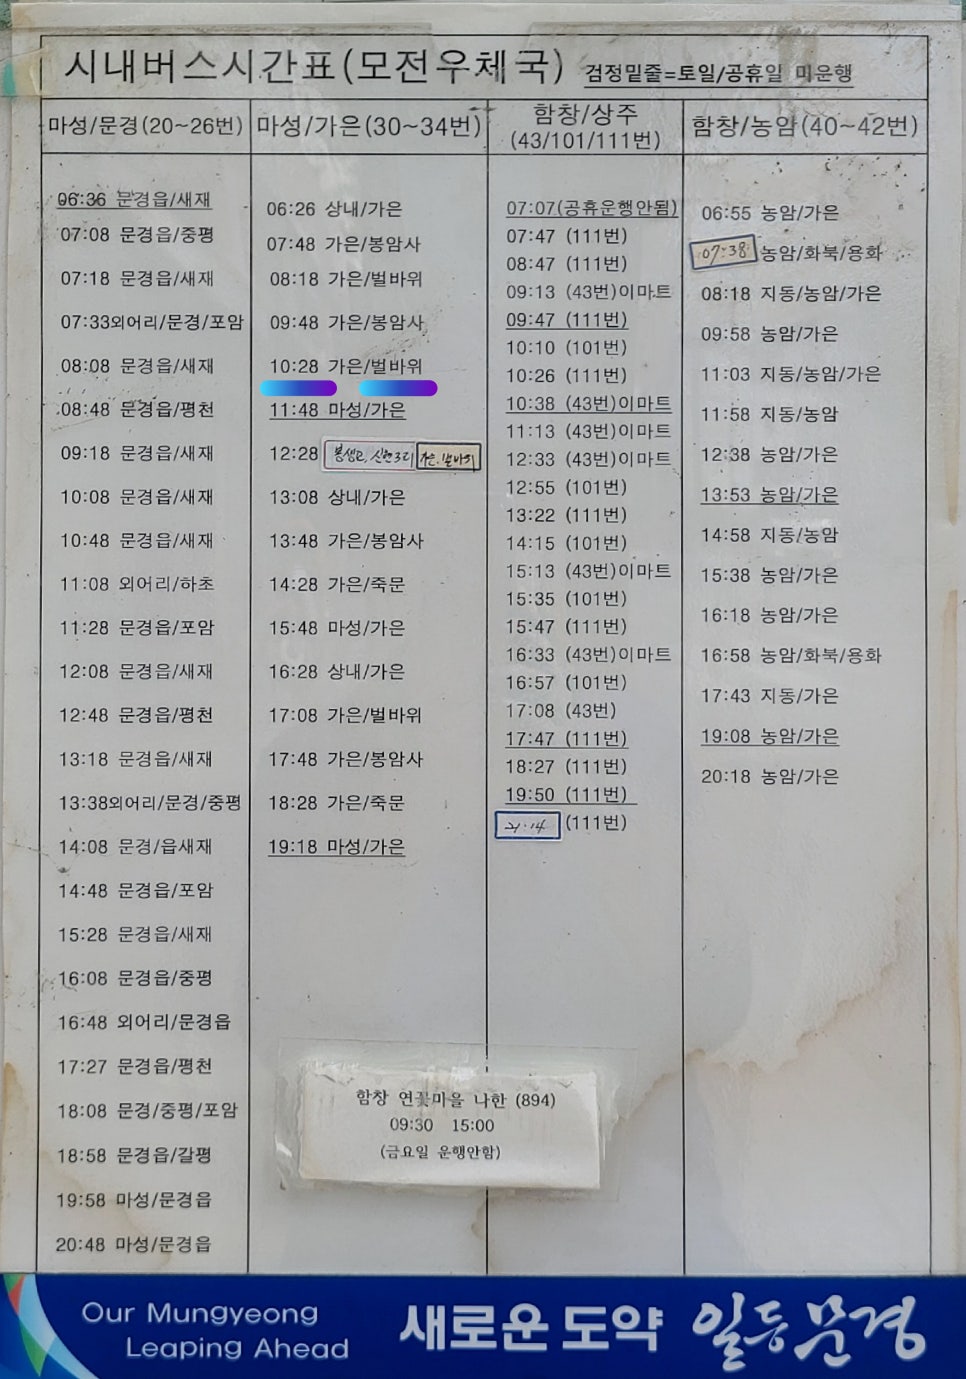 시내버스시간표(모전우체국) 검정밑줄=토일/공휴일 미운행
마성/문경(20~26번)
06:36 문경읍/새재
07:08 문경읍/중평
07:18 문경읍/새재
07:33외어리/문경/포암
08:08 문경읍/새재
08:48 문경읍/평천
09:18 문경읍/새재
10:08 문경읍/새재
10:48 문경읍/새재
11:08 외어리/하초
11:28 문경읍/포암
12:08 문경읍/새재
12:48 문경읍/평천
13:18 문경읍/새재
13:38외어리/문경/중평
14:08 문경/읍새재
14:48 문경읍/포암
15:28 문경읍/새재
16:08 문경읍/중평
16:48 외어리/문경읍
17:27 문경읍/평천
18:08 문경/중평/포암
18:58 문경읍/갈평
19:58 마성/문경읍
20:48 마성/문경읍
마성/가은(30~34번)
06:26 상내/가은
07:48 가은/봉암사
08:18 가은/벌바위
09:48 가은/봉암사
10:28 가은/벌바위
11:48 마성/가은
12:28 신현3리 가은.벌바위
13:08 상내/가은
13:48 가은/봉암사
14:28 가은/죽문
15:48 마성/가은
16:28 상내/가은
17:08 가은/벌바위
17:48 가은/봉암사
18:28 가은/죽문
19:18 마성/가은
함창/상주
(43/101/111번)
07:07(공휴운행안됨)
07:47 (111번)
08:47 (111번)
09:13 (43번)이마트
09:47 (111번)
10:10 (101번)
10:26 (111번)
10:38 (43번)이마트
11:13 (43번)이마트
12:33 (43번)이마트
12:55 (101번)
13:22 (111번)
14:15 (101번)
15:13 (43번)이마트
15:35 (101번)
15:47 (111번)
16:33 (43번)이마트
16:57 (101번)
17:08 (43번)
17:47 (111번)
18:27 (111번)
19:50 (111번)
21:14 (111번)
함창/농암(40~42번)
06:55 농암/가은
07:38 농암/화북/용화
08:18 지동/농암/가은
09:58 농암/가은
11:03 지동/농암/가은
11:58 지동/농암
12:38 농암/가은
13:53 농암/가은
14:58 지동/농암
15:38 농암/가은
16:18 농암/가은
16:58 농암/화북/용화
17:43 지동/가은
19:08 농암/가은
20:18 농암/가은
함창 연꽃마을 나한 (894)
09:30 15:00
(금요일 운행안함)
Our Mungyeong
Leaping Ahead
새로운 도약 일등문경